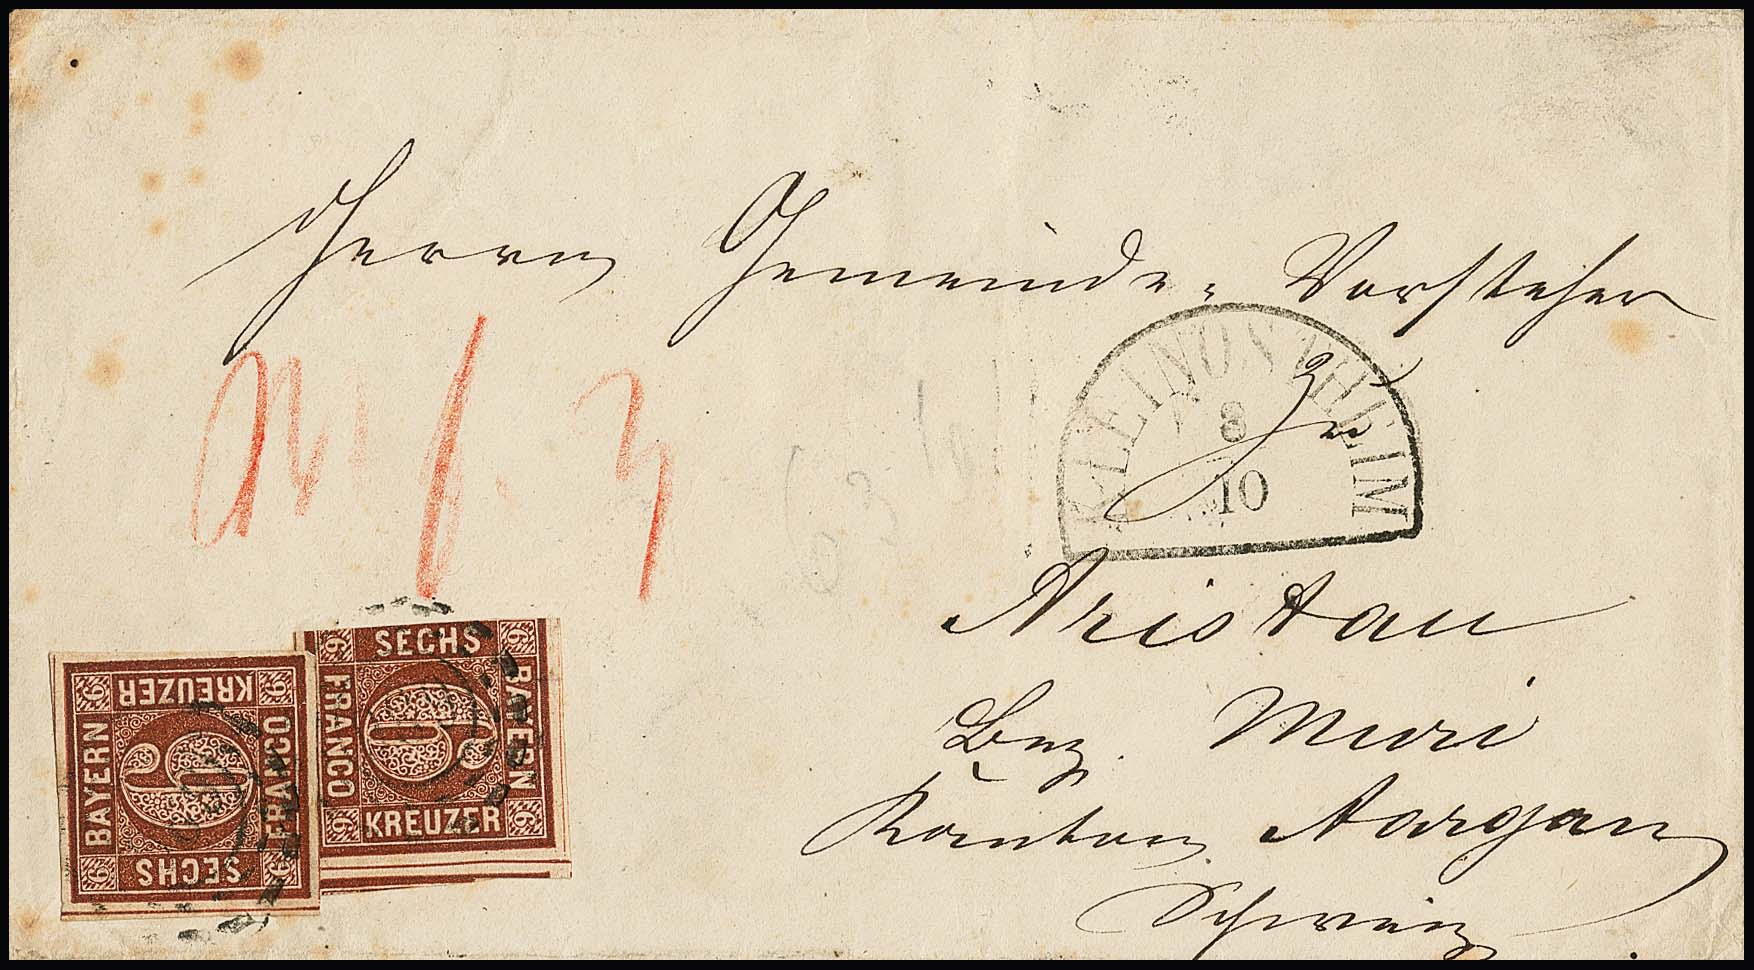 Herrn Gemeinde-Vorsteher
zu
Aristau
Bez. Muri
Kanton Aargau
Schweiz
KLEINOSTHEIM
8
10
BAYERN
KREUZER
FRANCO
SECHS
6
6
6
6
6
SECHS
BAYERN
FRANCO
KREUZER
6
6
6
6
6